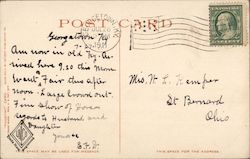 POST CARD
Georgetown Ky
Am now in old Ky. Ar-
rived here 9.20 this "Mon
went" Fair this after
noon & Large Crowd out-
Fine show of Horses
regards to Husband and
Daughter
yours
E.F.D.
Mrs. W L Kemper
St Bernard
Ohio
THIS SPACE MAY BE USED FOR MESSAGE.
THIS SPACE FOR THE ADDRESS.